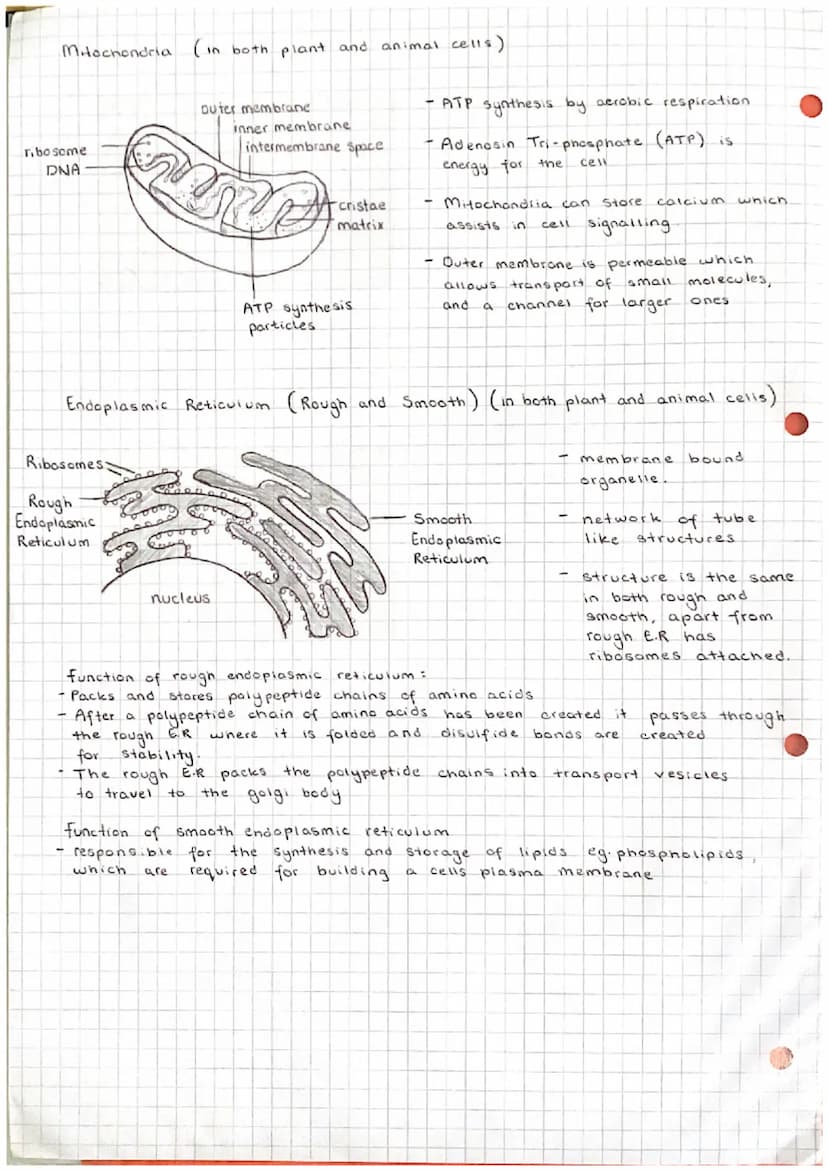 Mitochondria (in both plant and animal cells)
outer membrane
inner membrane
intermembrane space
ribosome
DNA
cristae
matrix
ATP synthesis
particles
- ATP synthesis by aerobic respiration
- Adenosin Tri-phosphate (ATP) is
energy for the cell
- Mitochondria can store calcium which
assists in cell signalling
- Outer membrane is permeable which
allows transport of small molecules,
and a channel for larger ones
Endoplasmic Reticulum (Rough and Smooth) (in both plant and animal cells)
Ribosomes
Rough
Endoplasmic
Reticulum
nucleus
Smooth
Endoplasmic
Reticulum
- membrane bound
organelle.
- network of tube
like structures
- structure is the same
in both rough and
smooth, apart from
rough E.R has
ribosomes attached.
function of rough endoplasmic reticulum:
- Packs and stores polypeptide chains of amino acids
- After a polypeptide chain of amino acids has been created it passes through
the rough E.R where it is folded and disulfide bonds are created
for stability.
- The rough E.R packs the polypeptide chains into transport vesicles
to travel to the golgi body
function of smooth endoplasmic reticulum
- responsible for the synthesis and storage of lipids eg. phospholipids,
which are required for building a cells plasma membrane